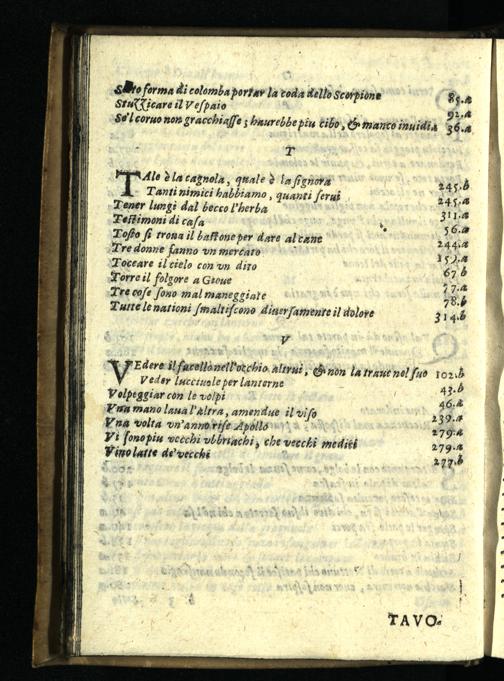 Sotto forma di colomba portar la coda dello Scorpione 85.a
Stuzzicare il Vespaio 92.a
Se'l coruo non gracchiasse; haurebbe piu cibo, & manco inuidia 36.a
T
TAle è la cagnola, quale è la signora 245.b
Tanti nimici habbiamo, quanti serui 245.a
Tener lungi dal becco l'herba 311.a
Testimoni di casa 56.a
Tosto si troua il bastone per dare al cane 244.a
Tre donne fanno vn mercato 152.a
Toccare il cielo con vn dito 67 b
Torre il folgore a Gioue 77.a
Tre cose sono mal maneggiate 78.b
Tutte le nationi smaltiscono diuersamente il dolore 314.b
V
VEdere il fucello nell'occhio altrui, & non la traue nel suo 102.b
Veder lucciuole per lanterne 43.b
Volpeggiar con le volpi 46.a
Vna mano laua l'altra, amendue il viso 239.a
Vna volta vn'anno rise Apollo 279.a
Vi sono piu vecchi vbbriachi, che vecchi medici 279.a
Vino latte de'vecchi 277.b
TAVO.